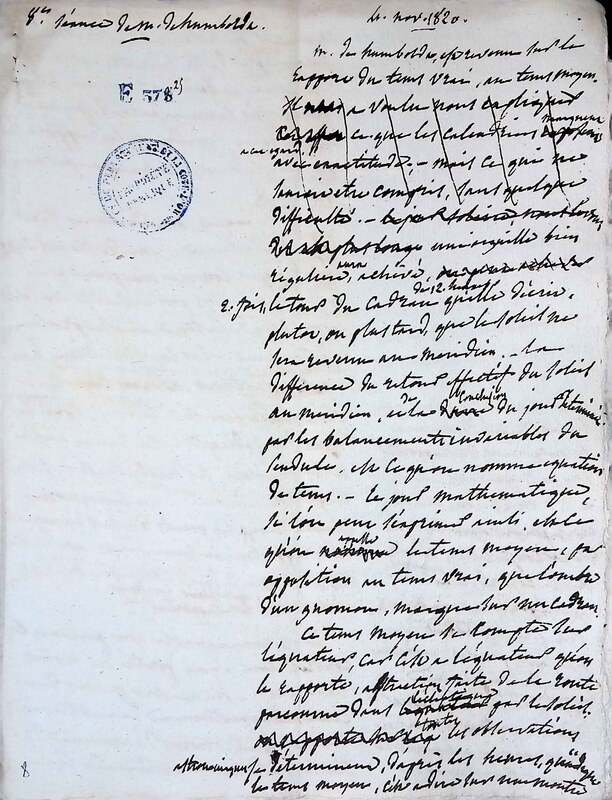 8e. séance de m. de humboldt.
4. nov. 1820.
E 578 25
m. de humboldt, est revenu sur le
rapport du tems vrai, au tems moyen.
Il a voulu nous expliquer
ce que les calendriers marquent
avec exactitude, - mais ce qui ne
sauroit etre compris, sans quelque
difficulté. -
une aiguille bien
régulière, aura achevé,
2. fois, le tour du cadran de 12. heures qu'elle décrit,
plutot, ou plus tard, que le soleil ne
sera revenu au meridien. - la
difference du retour effectif du soleil
au meridien, et de la conclusion du jour déterminé
par les balancements invariables du
pendule, est ce qu'on nomme equation
de tems. - le jour mathematique,
si l'on peut s'exprimer ainsi, est le
qu'on appelle le tems moyen, par
opposition au tems vrai, que l'ombre
d'un gnomon, marque sur un cadran
Ce tems moyen se compte sur
l'équateur, car c'est a l'équateur qu'on
le rapporte, abstraction faite de la route
parcourue dans l'écliptique par le soleil.
toutes les observations
astronomiques se déterminent, d'après les heures, qu'indique
le tems moyen, c'est a dire sur une montre
8